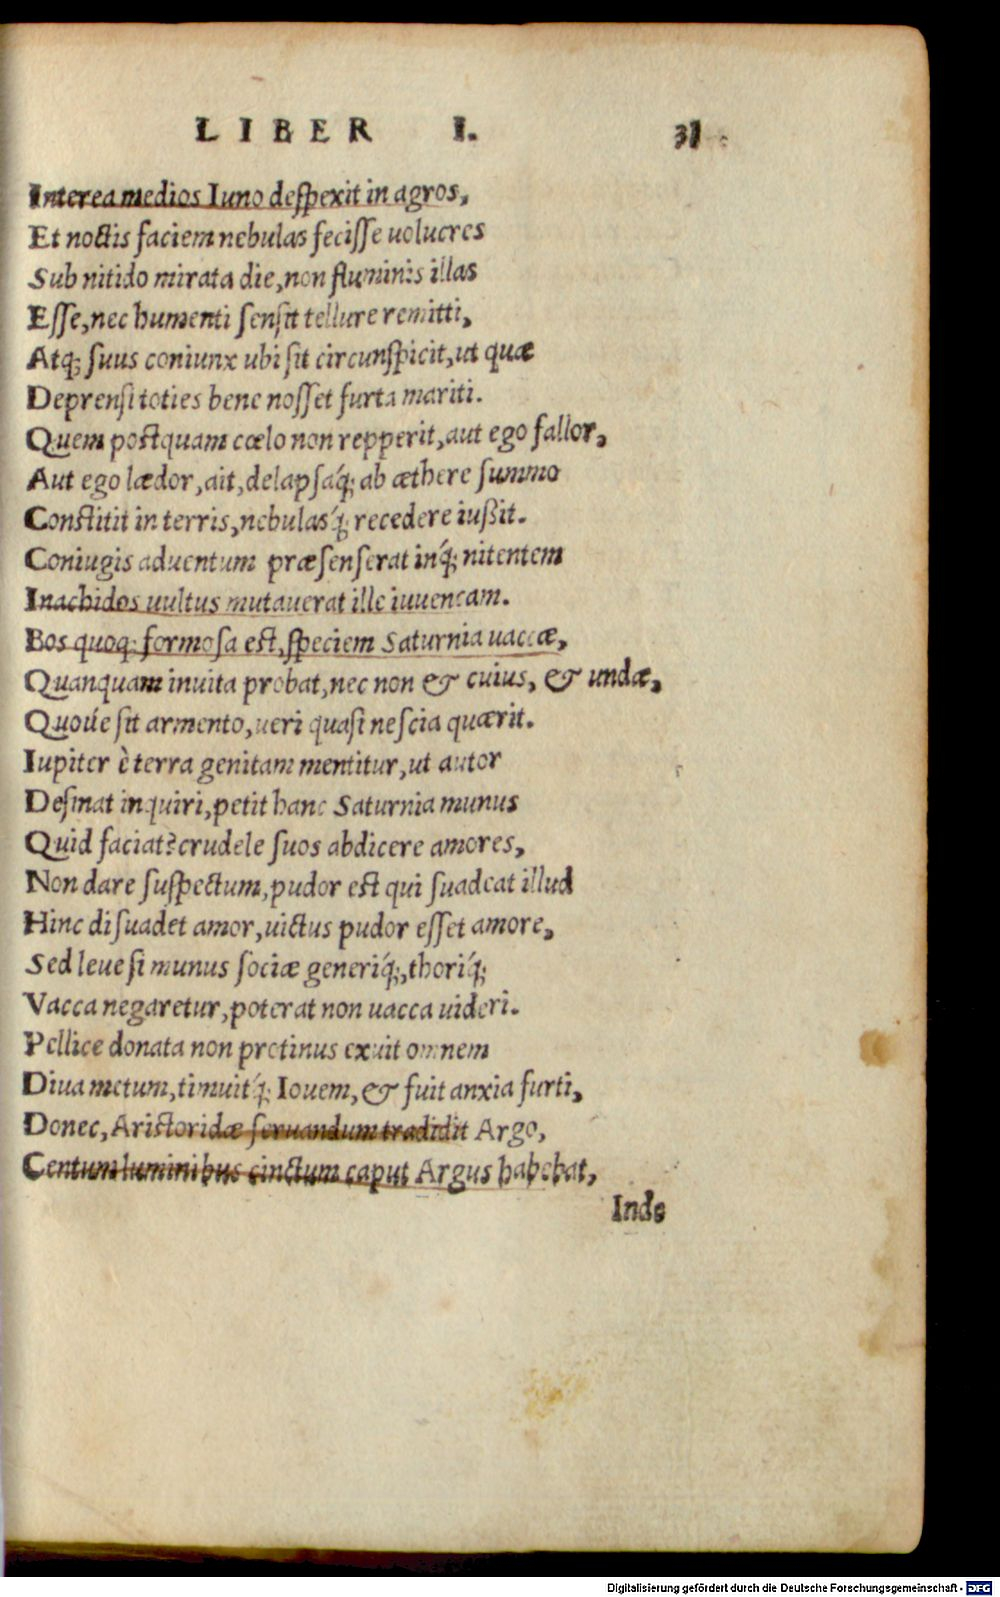 LIBER I. 31
Interea medios Iuno deſpexit in agros,
Et noctis faciem nebulas feciſſe uolucres
Sub nitido mirata die, non fluminis illas
Eſſe, nec humenti ſenſit tellure remitti,
Atq; ſuus coniunx ubi ſit circunſpicit, ut quæ
Deprenſi toties bene noſſet furta mariti.
Quem poſtquam cœlo non repperit, aut ego fallor,
Aut ego lædor, ait, delapſaq́; ab æthere ſummo
Conſtitit in terris, nebulasq́; recedere iußit.
Coniugis aduentum præſenſerat inq́; nitentem
Inachidos uultus mutauerat ille iuuencam.
Bos quoq; formoſa eſt, ſpeciem Saturnia uaccæ,
Quanquam inuita probat, nec non & cuius, & undæ,
Quoúe ſit armento, ueri quaſi neſcia quærit.
Iupiter è terra genitam mentitur, ut autor
Deſinat inquiri, petit hanc Saturnia munus
Quid faciat? crudele ſuos abdicere amores,
Non dare ſuſpectum, pudor eſt qui ſuadeat illud
Hinc diſuadet amor, uictus pudor eſſet amore,
Sed leue ſi munus ſociæ generiq́;, thoriq́;
Vacca negaretur, poterat non uacca uideri.
Pellice donata non protinus exuit omnem
Diua metum, timuitq́; Iouem, & fuit anxia furti,
Donec, Ariſtoridæ ſeruandum tradidit Argo,
Centum luminibus cinctum caput Argus habebat,
Inde
Digitalisierung gefördert durch die Deutsche Forschungsgemeinschaft - DFG